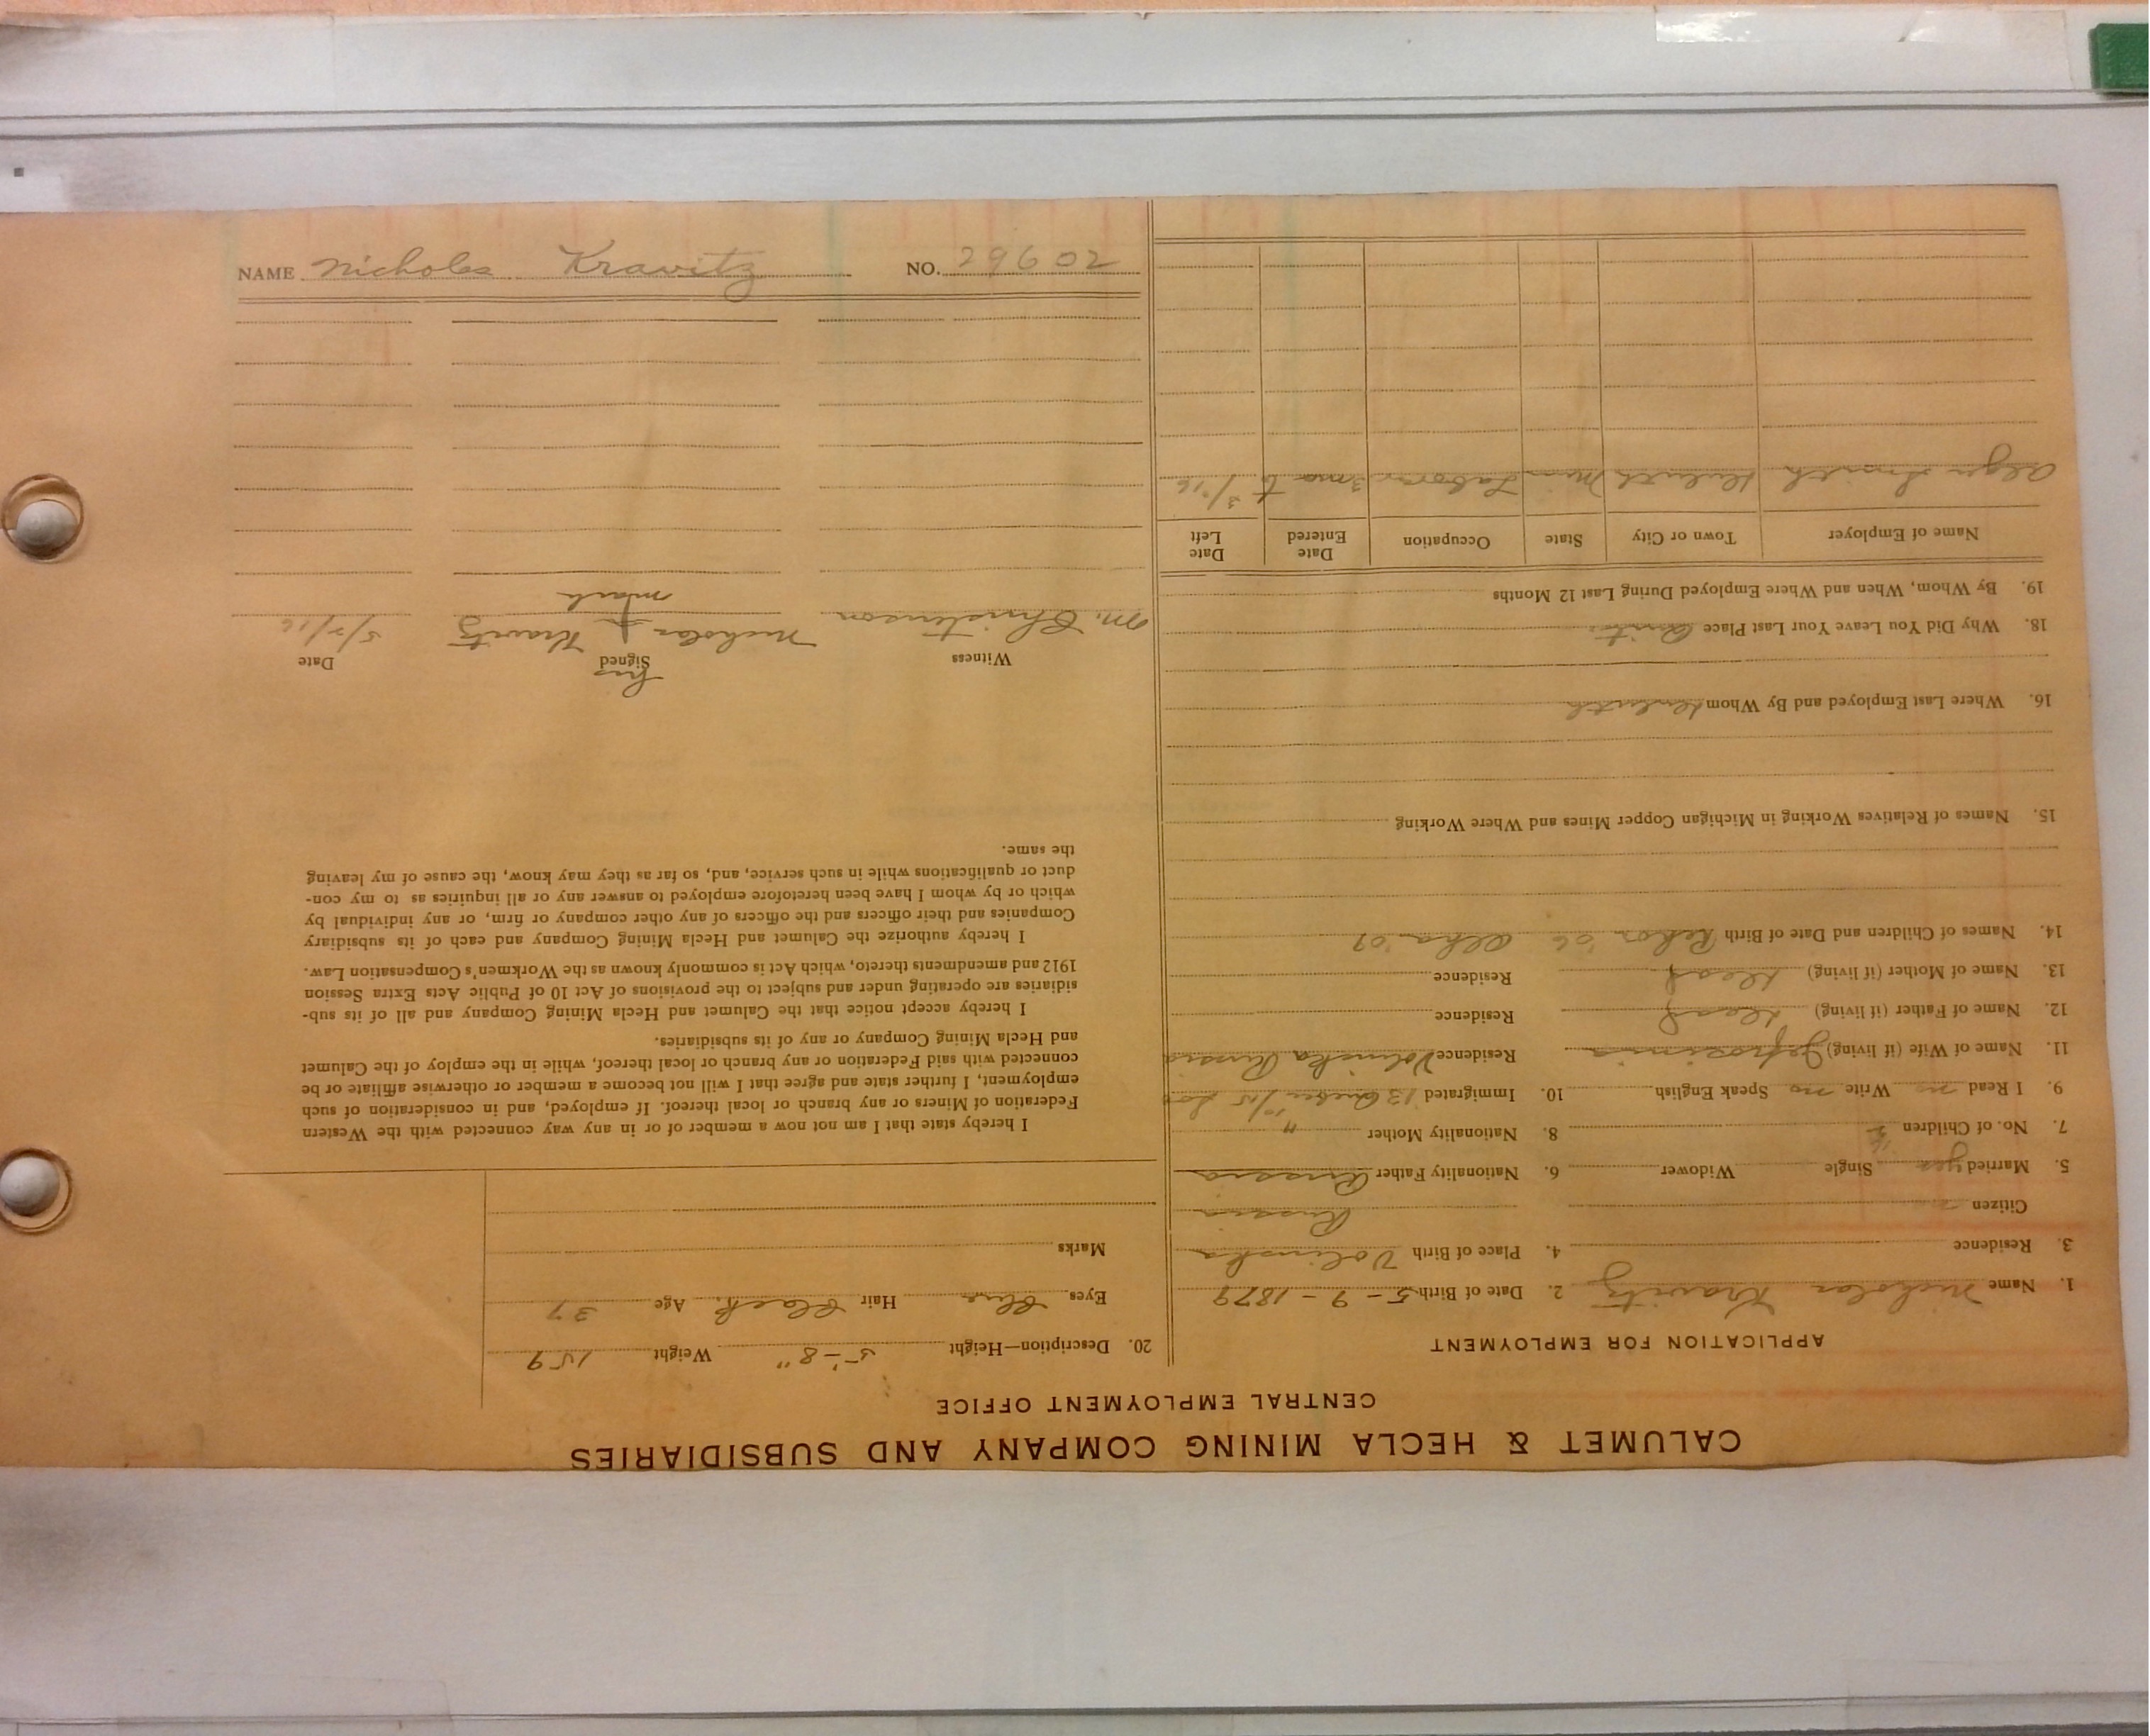 CALUMET & HECLA MINING COMPANY AND SUBSIDIARIES
CENTRAL EMPLOYMENT OFFICE
APPLICATION FOR EMPLOYMENT
1. Name Nicholas Kravitz 2. Date of Birth 5-9-1879
3. Residence 4. Place of Birth Volinska
Citizen Russia
5. Married yes Single Widower 6. Nationality Father Russia
7. No. of Children 2 8. Nationality Mother "
9. I Read no Write no Speak English 10. Immigrated 13 Quebec 10/15
11. Name of Wife (if living) Residence Volinska Russia
12. Name of Father (if living) dead Residence
13. Name of Mother (if living) dead Residence
14. Names of Children and Date of Birth '06 Olha '09
15. Names of Relatives Working in Michigan Copper Mines and Where Working
16. Where Last Employed and By Whom Duluth
18. Why Did You Leave Your Last Place Quit
19. By Whom, When and Where Employed During Last 12 Months
Name of Employer Town or City State Occupation Date Entered Date Left
Alger Smith Duluth Minn Laborer 3 mo to 3/16
20. Description—Height 5'-8" Weight 159
Eyes Blue Hair Black Age 37
Marks
I hereby state that I am not now a member of or in any way connected with the Western
Federation of Miners or any branch or local thereof. If employed, and in consideration of such
employment, I further state and agree that I will not become a member or otherwise affiliate or be
connected with said Federation or any branch or local thereof, while in the employ of the Calumet
and Hecla Mining Company or any of its subsidiaries.
I hereby accept notice that the Calumet and Hecla Mining Company and all of its sub-
sidiaries are operating under and subject to the provisions of Act 10 of Public Acts Extra Session
1912 and amendments thereto, which Act is commonly known as the Workmen's Compensation Law.
I hereby authorize the Calumet and Hecla Mining Company and each of its subsidiary
Companies and their officers and the officers of any other company or firm, or any individual by
which or by whom I have been heretofore employed to answer any or all inquiries as to my con-
duct or qualifications while in such service, and, so far as they may know, the cause of my leaving
the same.
Witness Signed Date
his
M. Christinson Nicholas Kravitz 5/2/16
mark
NAME Nicholas Kravitz NO. 29602